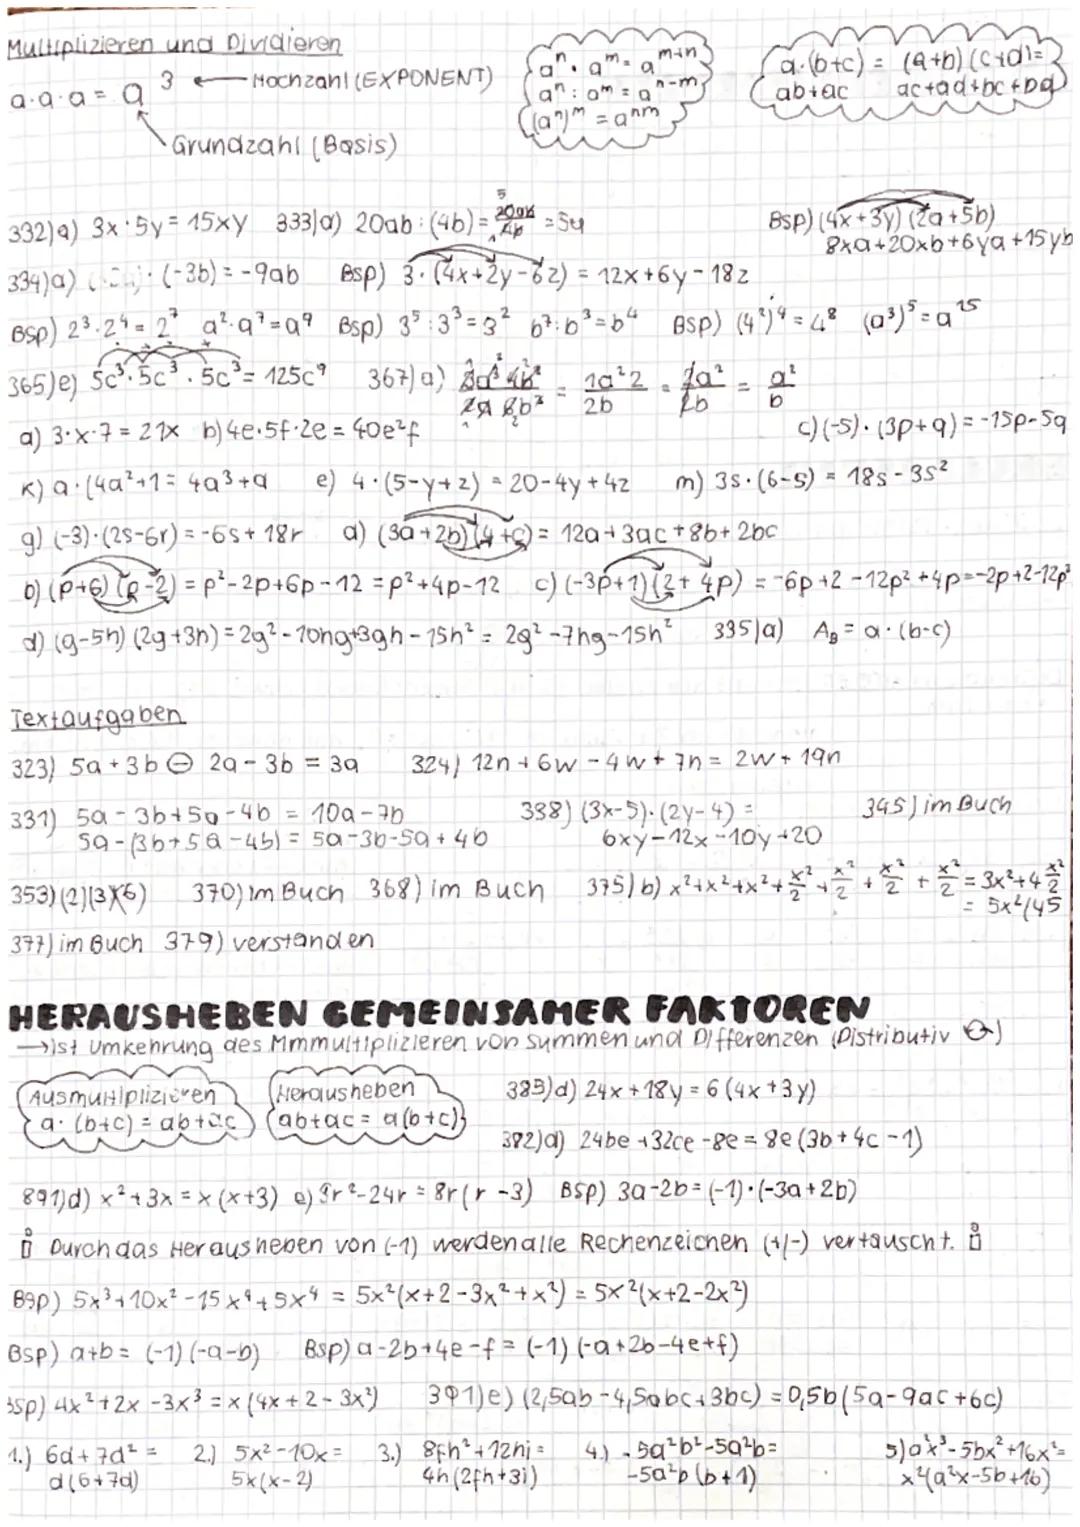 Multiplizieren und Dividieren
a·a·a = a³ ← Hochzahl (EXPONENT)
Grundzahl (Basis)
aⁿ · aᵐ = aᵐ⁺ⁿ
aⁿ : aᵐ = aⁿ⁻ᵐ
(aⁿ)ᵐ = aⁿᵐ
a·(b+c) = ab+ac
(a+b)(c+d) = ac+ad+bc+bd
332)a) 3x·5y = 15xy 333)a) 20ab : (4b) = 20ab/4b = 5a
Bsp) (4x+3y)(2a+5b)
8xa+20xb+6ya+15yb
334)a) · (-3b) = -9ab Bsp) 3·(4x+2y-6z) = 12x+6y-18z
Bsp) 2³·2⁴ = 2⁷ a²·a⁷ = a⁹ Bsp) 3⁵:3³ = 3² b⁷:b³ = b⁴ Bsp) (4²)⁴ = 4⁸ (a³)⁵ = a¹⁵
365)e) 5c³·5c³·5c³ = 125c⁹ 367)a) = 1a²2/2b = 2a²/2b = a²/b
a) 3·x·7 = 21x b) 4e·5f·2e = 40e²f c) (-5)·(3p+q) = -15p-5q
k) a·(4a²+1 = 4a³+a e) 4·(5-y+z) = 20-4y+4z m) 3s·(6-s) = 18s-3s²
g) (-3)·(2s-6r) = -6s+18r a) (3a+2b)(4+c) = 12a+3ac+8b+2bc
b) (p+6)(p-2) = p²-2p+6p-12 = p²+4p-12 c) (-3p+1)(2+4p) = -6p+2-12p²+4p=-2p+2-12p²
d) (g-5h)(2g+3h) = 2g²-10hg+3gh-15h² = 2g²-7hg-15h² 335)a) A_B = a·(b-c)
Textaufgaben
323) 5a+3b ⊖ 2a-3b = 3a 324) 12n+6w-4w+7n = 2w+19n
331) 5a-3b+5a-4b = 10a-7b 338) (3x-5)·(2y-4) = 345) im Buch
5a-(3b+5a-4b) = 5a-3b-5a+4b 6xy-12x-10y+20
353)(2)(3)(6) 370) im Buch 368) im Buch 375) b) x²+x²+x²+x²/2+x²/2+x²/2+x²/2 = 3x²+4x²/2
= 5x²/45
377) im Buch 379) verstanden
HERAUSHEBEN GEMEINSAMER FAKTOREN
→ ist Umkehrung des Mmmultiplizieren von Summen und Differenzen (Distributiv G)
Ausmultiplizieren
a·(b+c) = ab+ac
Herausheben
ab+ac = a(b+c)
383)d) 24x+18y = 6(4x+3y)
382)a) 24be+32ce-8e = 8e(3b+4c-1)
891)d) x²+3x = x(x+3) e) 8r²-24r = 8r(r-3) Bsp) 3a-2b = (-1)·(-3a+2b)
Durch das Herausheben von (-1) werden alle Rechenzeichen (+/-) vertauscht.
Bsp) 5x³+10x²-15x⁴+5x⁴ = 5x²(x+2-3x²+x²) = 5x²(x+2-2x²)
Bsp) a+b = (-1)(-a-b) Bsp) a-2b+4e-f = (-1)(-a+2b-4e+f)
Bsp) 4x²+2x-3x³ = x(4x+2-3x²) 391)e) (2,5ab-4,5abc+3bc) = 0,5b(5a-9ac+6c)
1.) 6d+7d² = 2.) 5x²-10x = 3.) 8fh²+12hi = 4.) -5a²b²-5a²b = 5) a²x³-5bx²+16x² =
d(6+7d) 5x(x-2) 4h(2fh+3i) -5a²b(b+1) x²(a²x-5b+16)